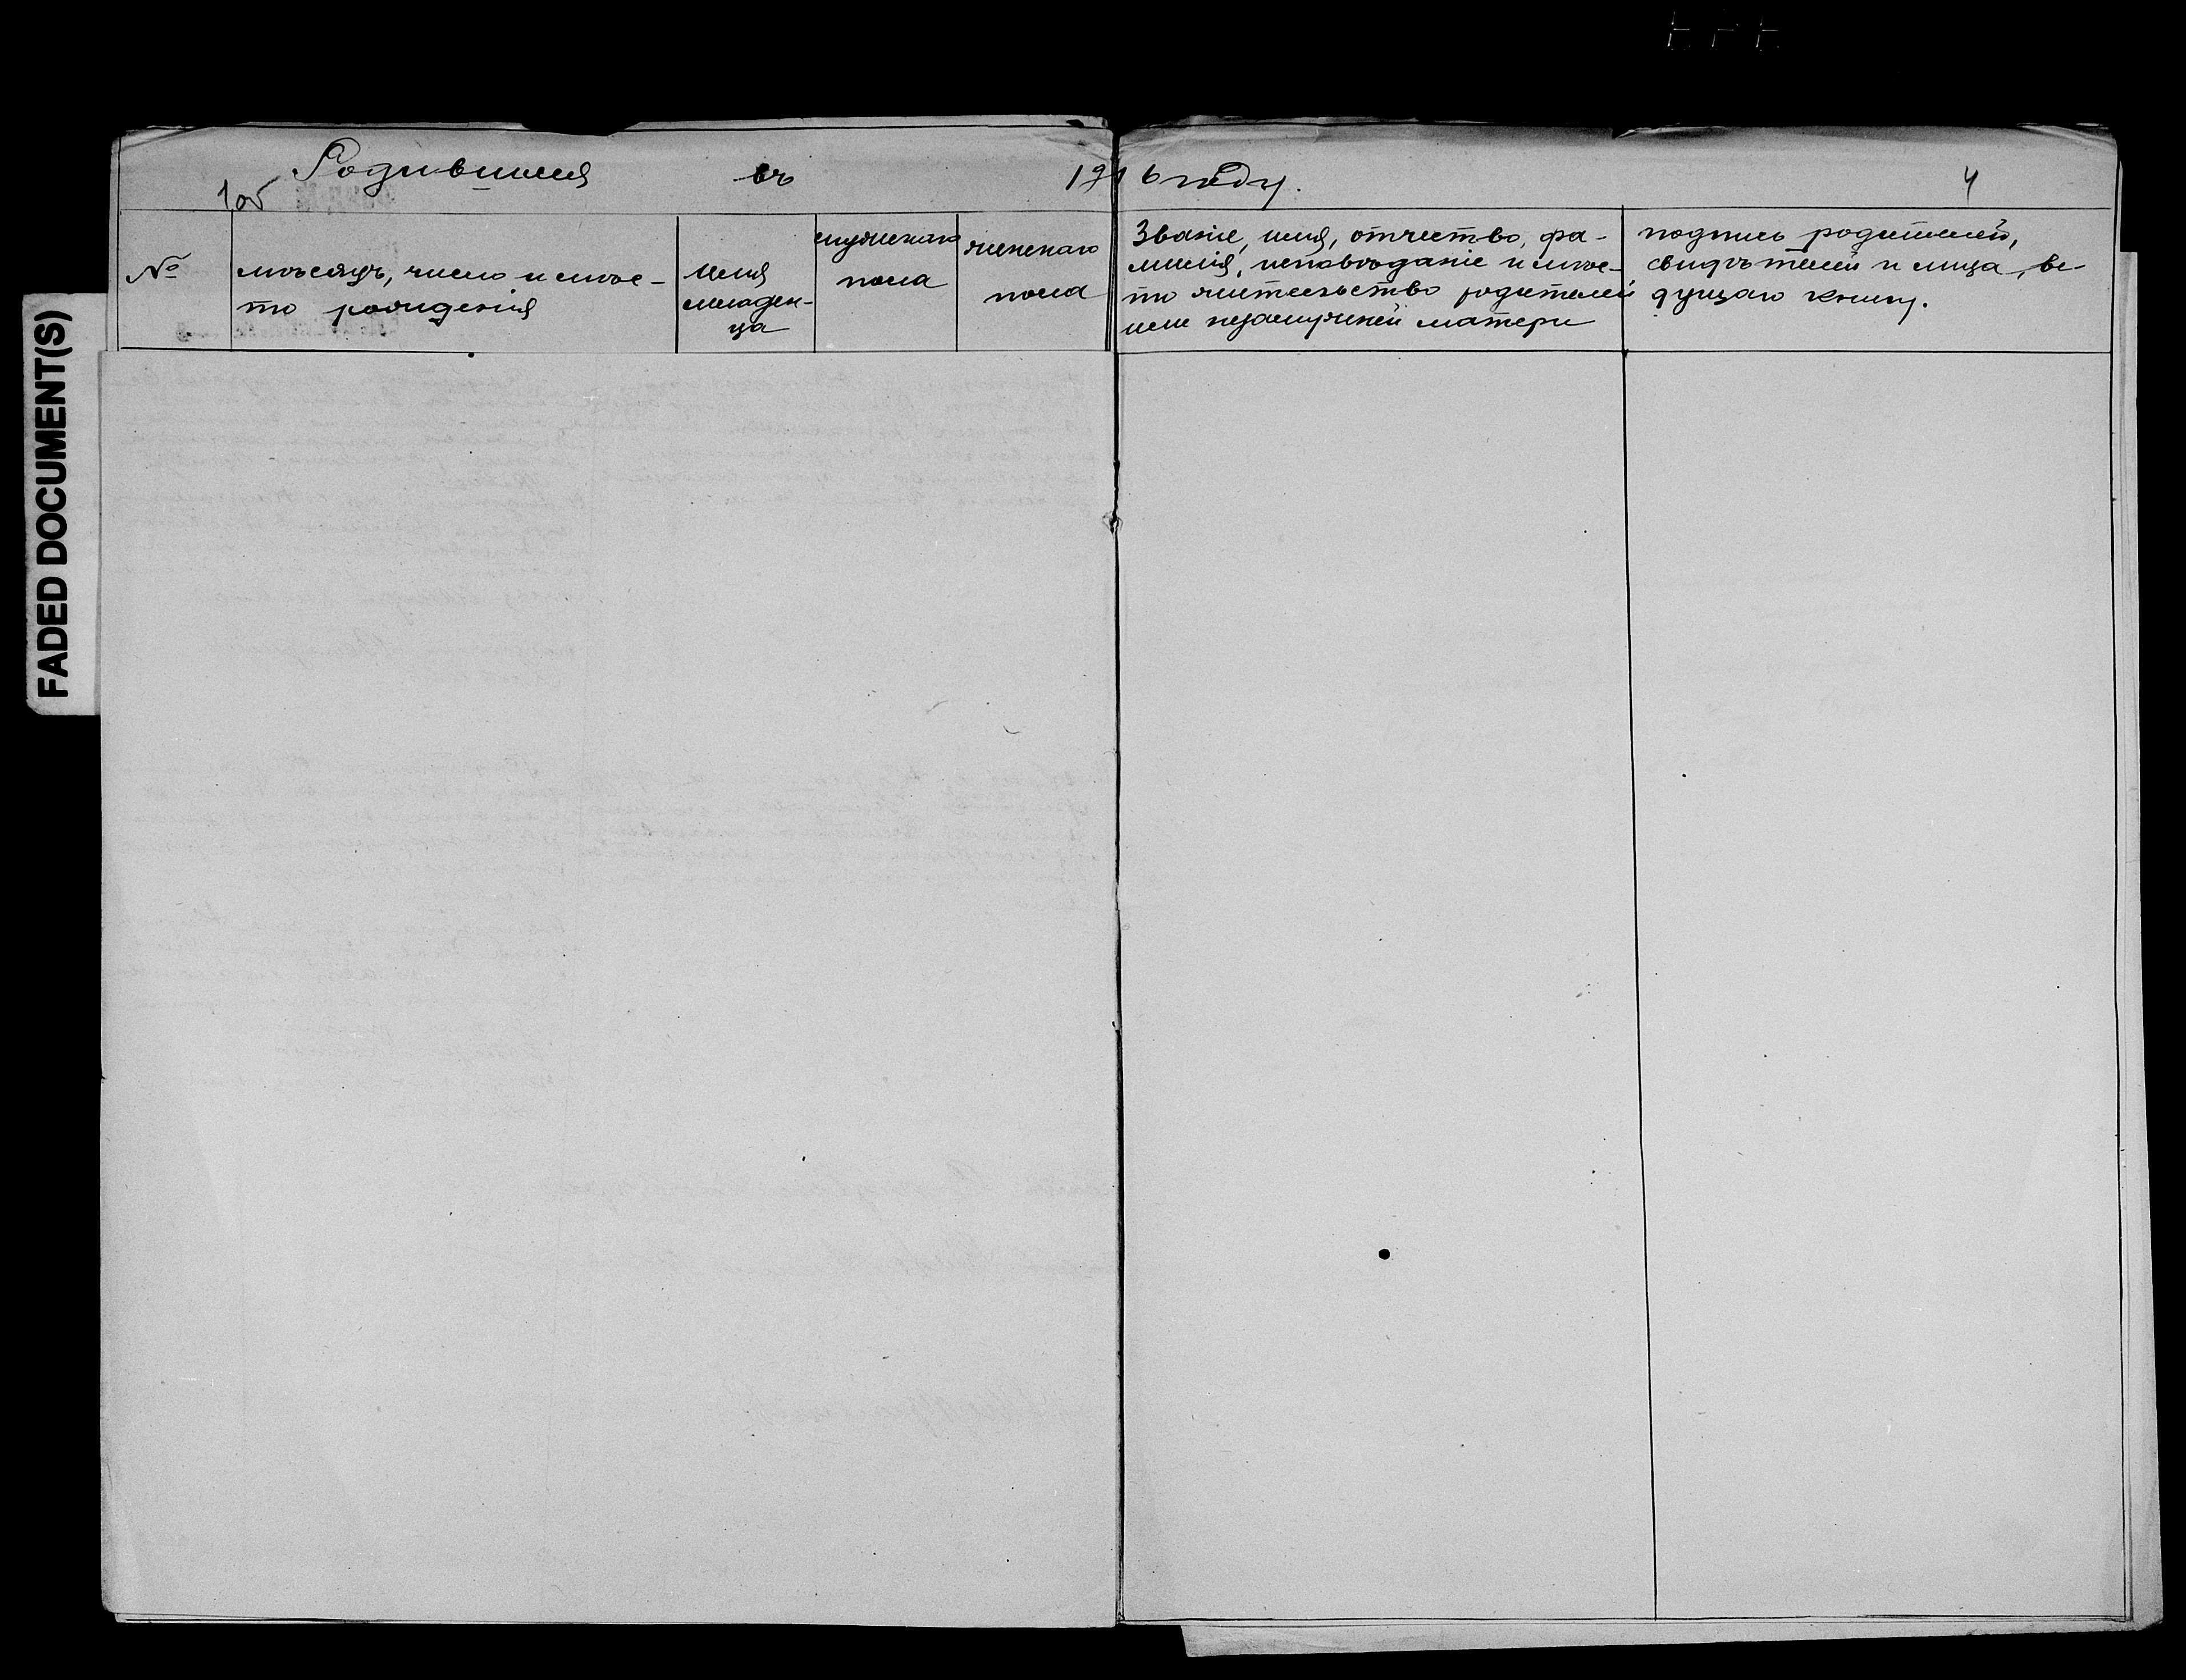 FADED DOCUMENT(S)
Родившiися въ 1916 году. 4
105
№
мѣсяцъ, число и мѣс-
то рожденiя
имя
младен-
ца
мужскаго
пола
женскаго
пола
Званiе, имя, отчество, фа-
милiя, исповѣданiе и мѣс-
то жительство родителей
или незамужней матери
подпись родителей,
свидѣтелей и лица, ве-
дущаго книгу.